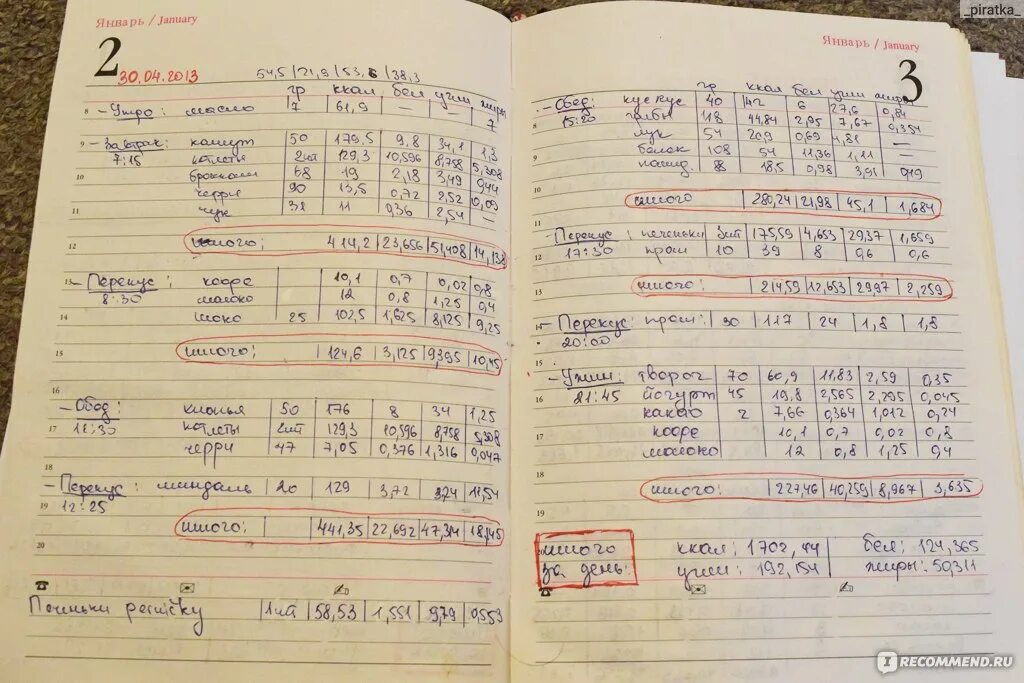 _piratka_
Январь / January
2
30.04.2013 54,5 | 21,9 | 53,6 | 38,3
гр ккал бел угли жиры
8 – Утро: масло 7 61,9 — — 7
9 – Завтрак: камут 50 179,5 9,8 34,1 1,3
7:15 котлеты 2шт 129,3 10,596 8,758 5,308
10 брокколи 68 19 2,18 3,49 0,44
черри 90 13,5 0,72 2,52 0,09
11 лук 31 11 0,36 2,54 —
12 итого: 414,2 23,656 51,408 14,138
13 – Перекус: кофе 10,1 0,7 0,02 0,8
8:30 молоко 12 0,8 1,25 0,4
14 шоко 25 102,5 1,625 8,125 9,25
15 итого: 124,6 3,125 9,395 10,45
16
– Обед: киноья 50 176 8 34 1,25
17 11:30 котлеты 2шт 129,3 10,596 8,758 5,308
черри 47 7,05 0,376 1,316 0,047
18
– Перекус: миндаль 20 129 3,72 3,24 11,54
19 12:25
итого: 441,35 22,692 47,314 18,145
20
Печеньки 1шт 58,53 1,551 9,79 0,553
Январь / January
3
гр ккал бел угли жиры
– Обед: кускус 40 142 6 27,6 0,84
8 15:20 грибы 118 44,84 2,95 7,67 0,354
лук 54 20,9 0,69 4,81 —
9 белок 108 54 11,36 1,11 —
18,5 0,98 3,91 0,19
10
итого 280,24 21,98 45,1 1,684
11
Перекус: печеньки 3шт 175,59 4,653 29,37 1,659
12 17:30 прот 10 39 8 0,6 0,6
13 итого: 214,59 12,653 29,97 2,259
14 – Перекус: прот 30 117 24 1,8 1,8
20:00
15
– Ужин: творог 70 60,9 11,83 2,59 0,35
16 21:45 йогурт 45 19,8 2,565 2,295 0,045
какао 2 7,66 0,364 1,012 0,24
17 кофе 10,1 0,7 0,02 0,8
молоко 12 0,8 1,25 0,4
18
итого: 227,46 40,259 8,967 3,635
19
20 итого ккал: 1702,44 бел: 124,365
за день: угли: 192,154 жиры: 50,311
IRECOMMEND.RU